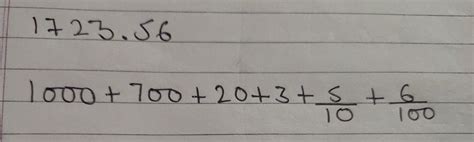 1723.56
1000 + 700 + 20 + 3 + 5/10 + 6/100